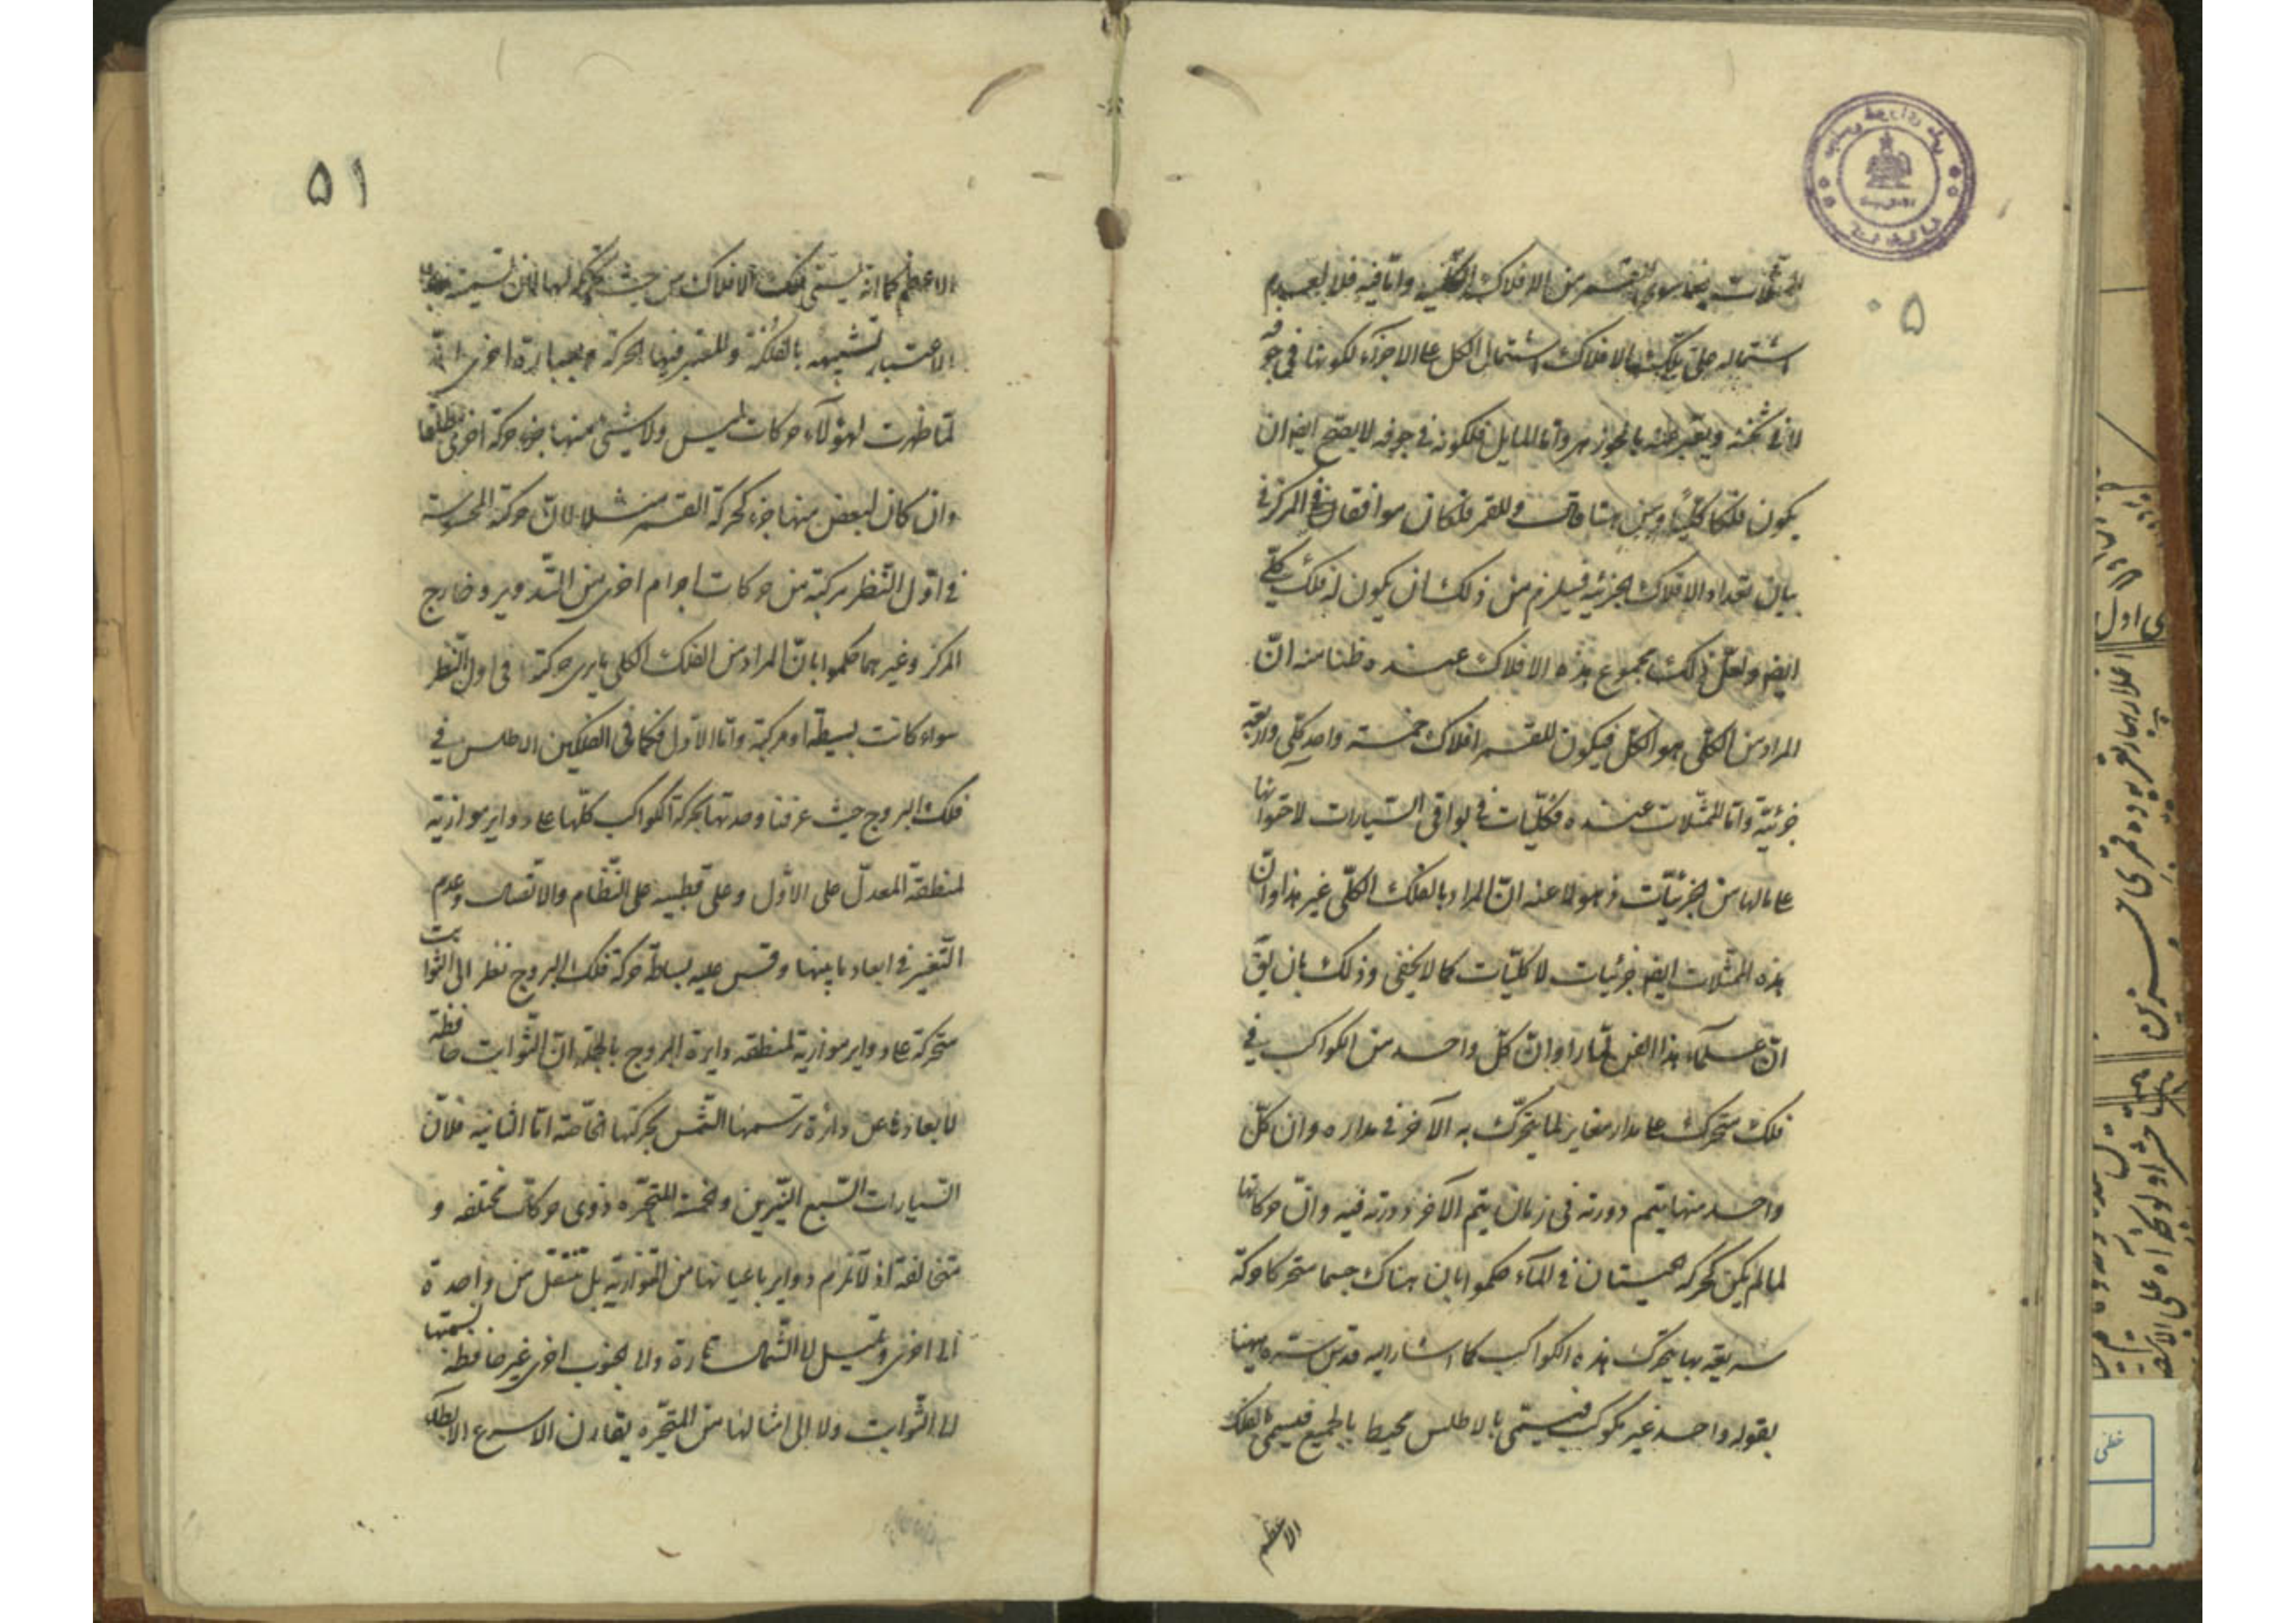 ۵۰
الممثلات فيما سوى القمر من الافلاك الكلية واما فيه فلا لعدم
اشتماله على تلك الافلاك اشتمال الكل على الاجزاء لكونها في جوفه
لا في ثخنه ويعبر عنه بالجوزهر واما المايل فلكونه في جوفه لا يصح ايضا ان
يكون فلكا كليا وللقمر فلكان موافقان في المركز في
بيان تعداد الافلاك الجزئية فيلزم من ذلك ان يكون له فلك كلي
ايضا ولعل ذلك مجموع هذه الافلاك عنده ظنا منه ان
المراد من الكلي هو الكل فيكون للقمر افلاك خمسة واحد كلي واربعة
جزئية واما الممثلات عنده فكليات في بواقي السيارات لاحتوائها
على مالها من الجزئيات ذهولا عنه ان المراد بالفلك الكلي غير هذا وان
هذه الممثلات ايضا جزئيات لا كليات كما لا يخفى وذلك بان يق
ان علماء هذا الفن لما راوا ان كل واحد من الكواكب في
فلك متحرك على مدار مغاير لما يتحرك به الآخر في مداره وان كل
واحد منها يتم دورته في زمان يتم الآخر دورته فيه وان حركاتها
لما لم يكن كحركة الحيتان في الماء حكموا بان هناك جسما متحركا حركة
سريعة بها يتحرك هذه الكواكب كما اشار اليه قدس سره ههنا
بقوله واحد غير مكوكب فيسمى بالاطلس محيط بالجميع فيسمى بالفلك
الاعظم
۵۱
الاعظم كما انه يسمى فلك الافلاك من حيث تحركه لها لان تسميته بهذا
الاعتبار تشبيهه بالفلكة والمعتبر فيها الحركة وبعبارة اخرى انه
لما ظهرت لهؤلاء حركات ليس ولا شئ منها جزء حركة اخرى مطلقا
وان كان لبعض منها جزء كحركة القمر مثلا لان حركته المحسوسة
في اول النظر مركبة من حركات اجرام اخرى من التدوير وخارج
المركز وغيرهما حكموا بان المراد من الفلك الكلي ما يرى حركته في اول النظر
سواء كانت بسيطة او مركبة واما الاول فكما في الفلكين الاطلس في
فلك البروج حيث عرفنا وحدتها بحركة الكواكب كلها على دواير موازية
لمنطقة المعدل على الاول وعلى قطبيه على النظام والاتصال وعدم
التغير في ابعاد ما بينها وقس عليه بساطة حركة فلك البروج نظر الى الثوابت
متحركة على دواير موازية لمنطقة دايرة البروج بالجملة ان الثوابت حافظة
لابعادها عن دائرة ترسمها الشمس بحركتها الخاصة اما الثانية فلان
السيارات السبع النيرين وخمسة المتحيرة ذوى حركات مختلفة و
متخالفة اذ لا تلزم دواير باعيانها من الموازية بل تنتقل من واحدة
الى اخرى وتميل الى الشمال تارة والى الجنوب اخرى غير حافظة نسبتها
الى الثوابت ولا الى امثالها من المتحيرة يقارن الاسرع الابطأ